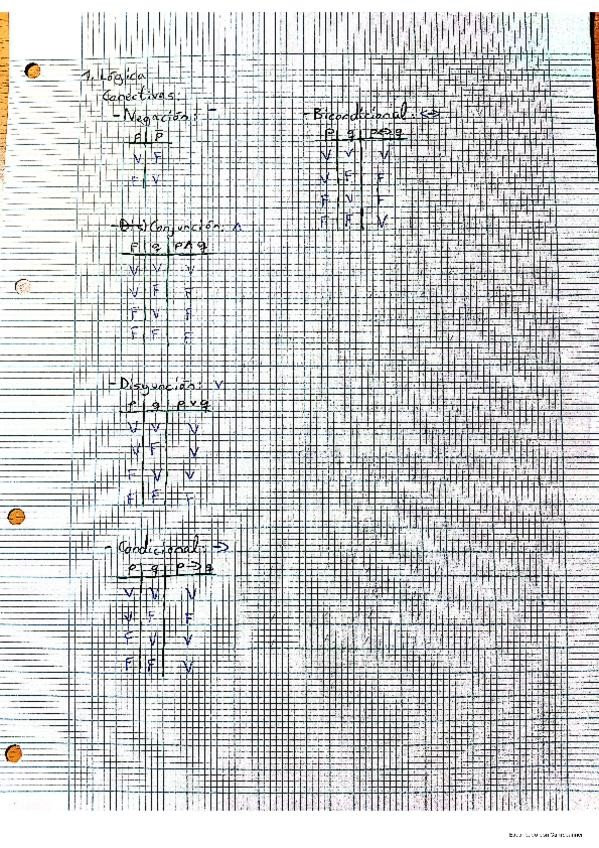 1. Lógica
Conectivas:
- Negación: ¬
p | p̄
V | F
F | V
- Conjunción: ∧
p | q | p∧q
V | V | V
V | F | F
F | V | F
F | F | F
- Disyunción: v
p | q | p v q
V | V | V
V | F | V
F | V | V
F | F | F
- Condicional: →
p | q | p→q
V | V | V
V | F | F
F | V | V
F | F | V
- Bicondicional: ↔
p | q | p↔q
V | V | V
V | F | F
F | V | F
F | F | V